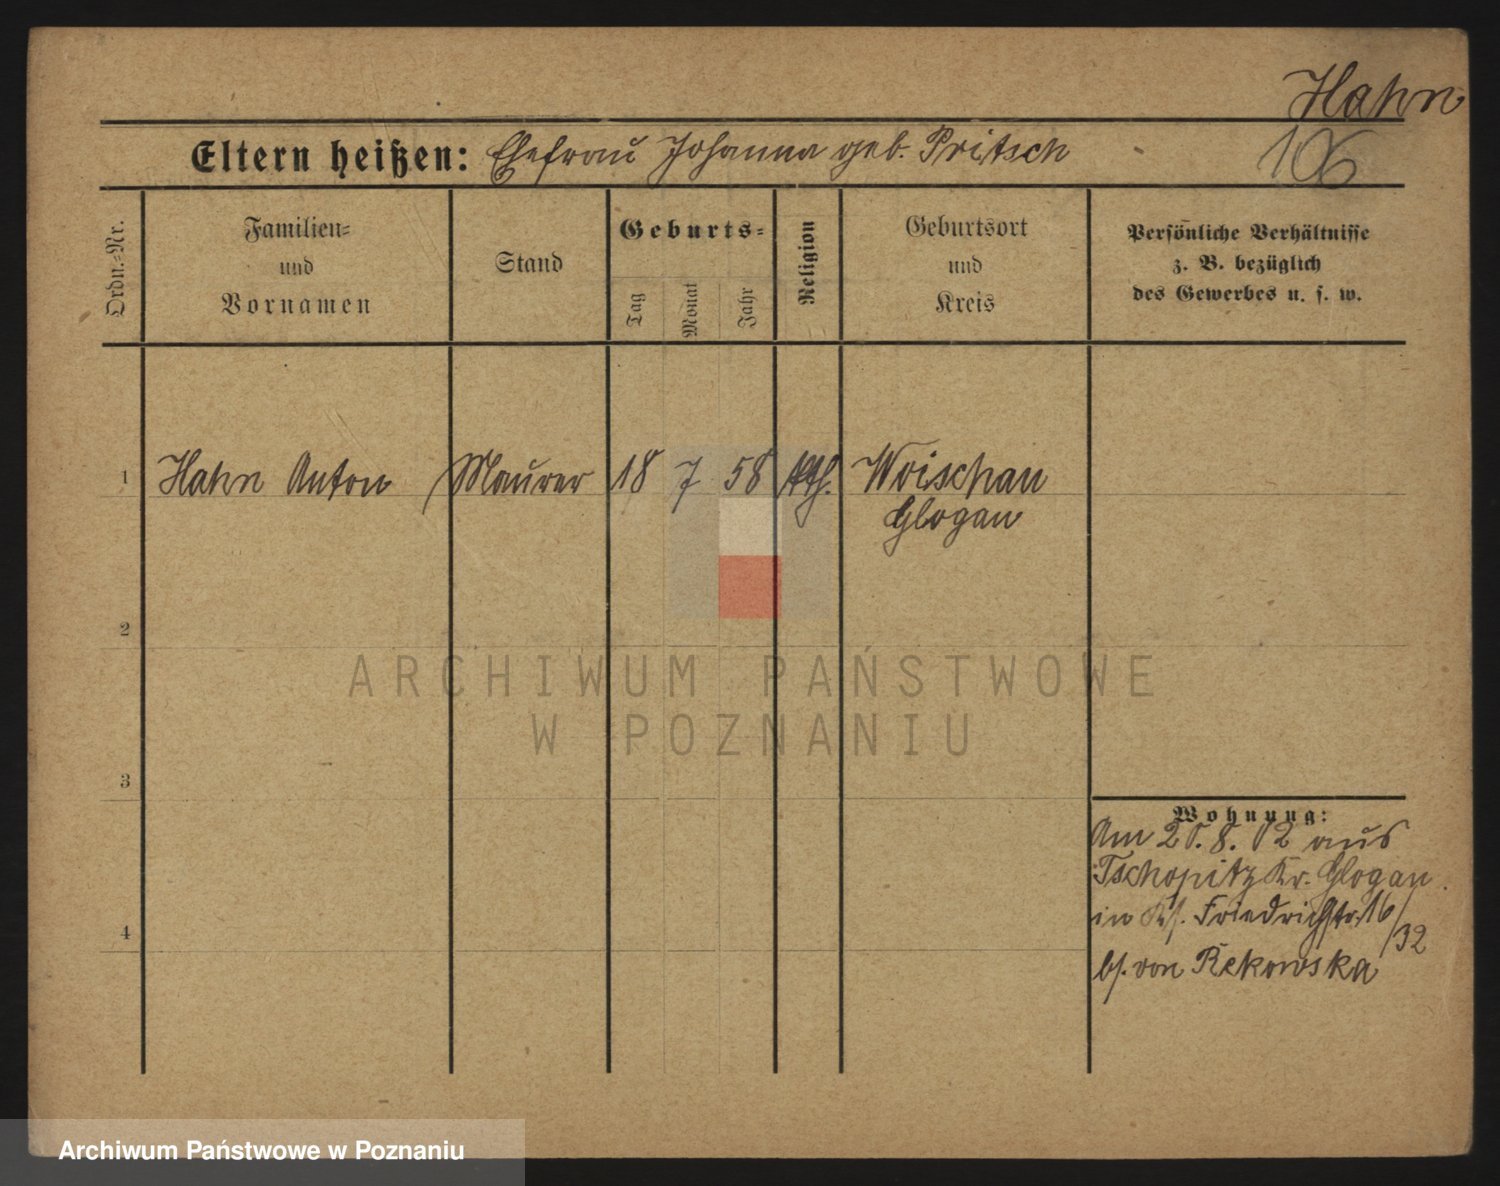 Hahn
106
Eltern heißen: Ehefrau Johanna geb. Pritsch
Ordn.-Nr.
Familien-
und
Vornamen
Stand
Geburts-
Tag
Monat
Jahr
Religion
Geburtsort
und
Kreis
Persönliche Verhältnisse
z. B. bezüglich
des Gewerbes u. s. w.
1 Hahn Anton Maurer 18 7 58 kth. Woischau
Glogau
2
3
4
Wohnung:
Am 20.8.02 aus
Tschopitz Kr. Glogau
in Friedrichstr. 16/32
bs. von Rekowska
ARCHIWUM PAŃSTWOWE
W POZNANIU
Archiwum Państwowe w Poznaniu